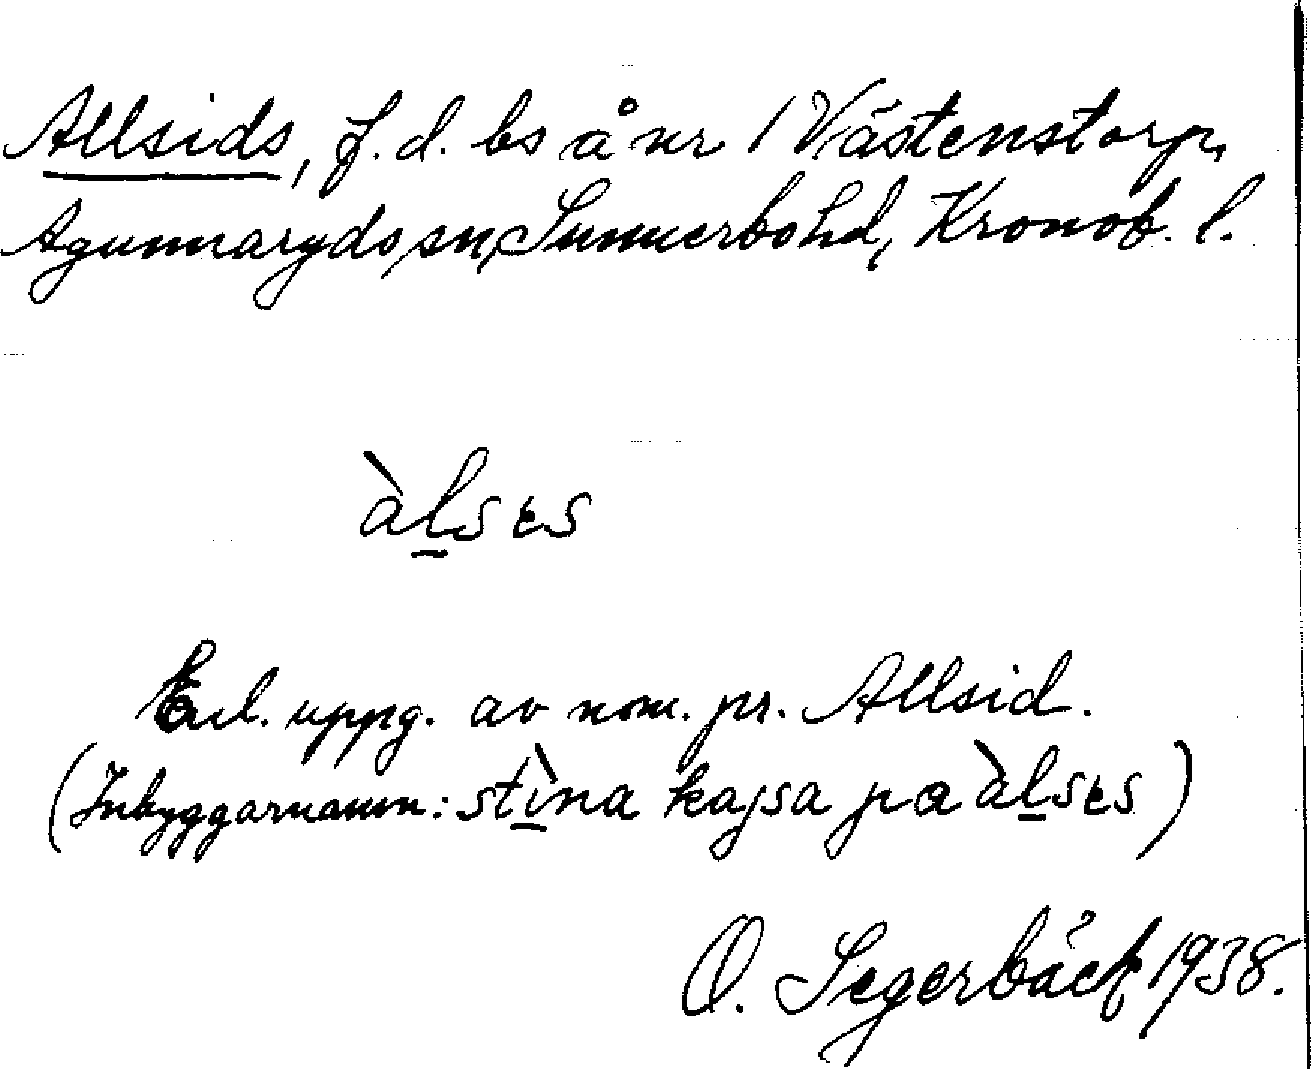 Allsids, f.d. bs å nr 1 Västenstorp,
Agunnaryds sn, Sunnerbo hd, Kronob. l.
àlses
Enl. uppg. av nom. pr. Allsid.
(Inbyggarnamn: stìna kajsa pa àlses)
O. Segerbäck 1938.